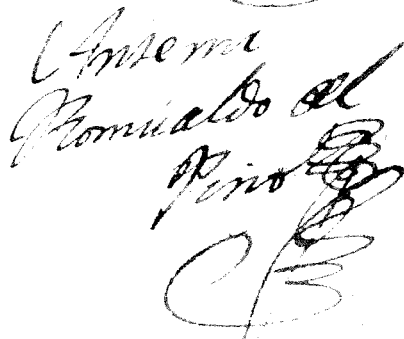 Ante mi
Romualdo del
Pino